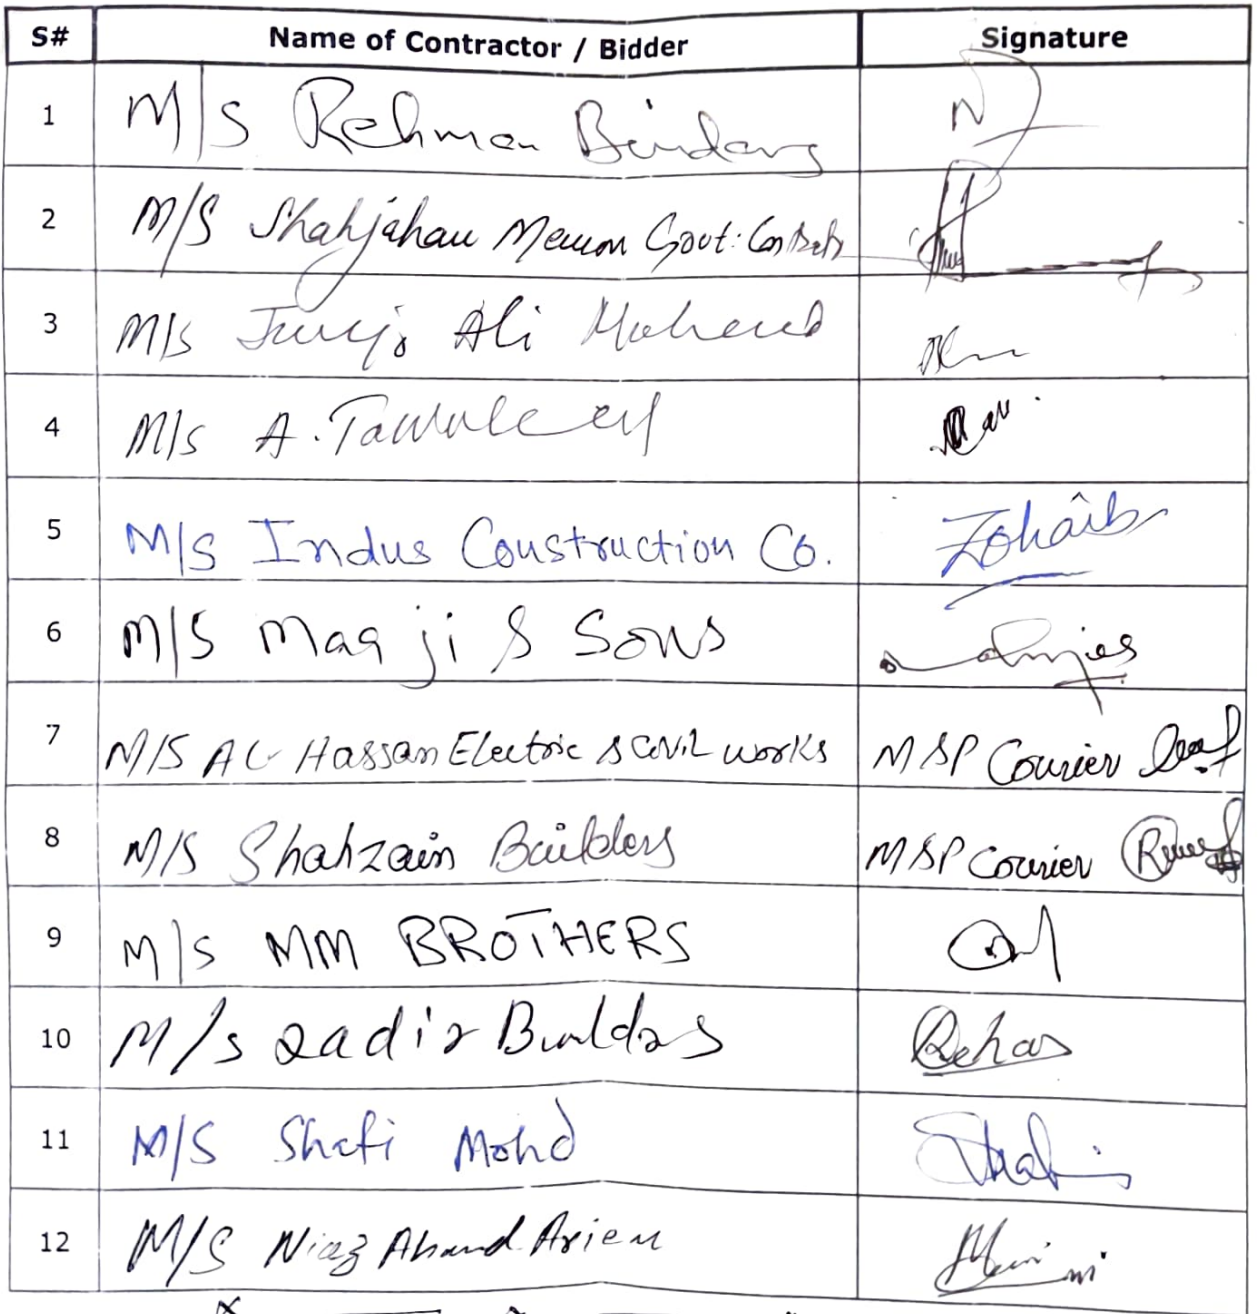 S# Name of Contractor / Bidder Signature
1 M/S Rehman Bindars
2 M/S Shahjahan Memon Govt: Contrctr
3 M/s Junejo Ali Mohamad
4 M/s A.
5 M/S Indus Construction Co. Zohaib
6 M/S Maq ji & Sons
7 M/S AL Hassan Electric & Civil works MSP Courier
8 M/S Shahzain Builders MSP Courier
9 M/s MM BROTHERS
10 M/s Qadir Builders Rehan
11 M/S Shafi Mohd Shafi
12 M/S Niaz Ahmed